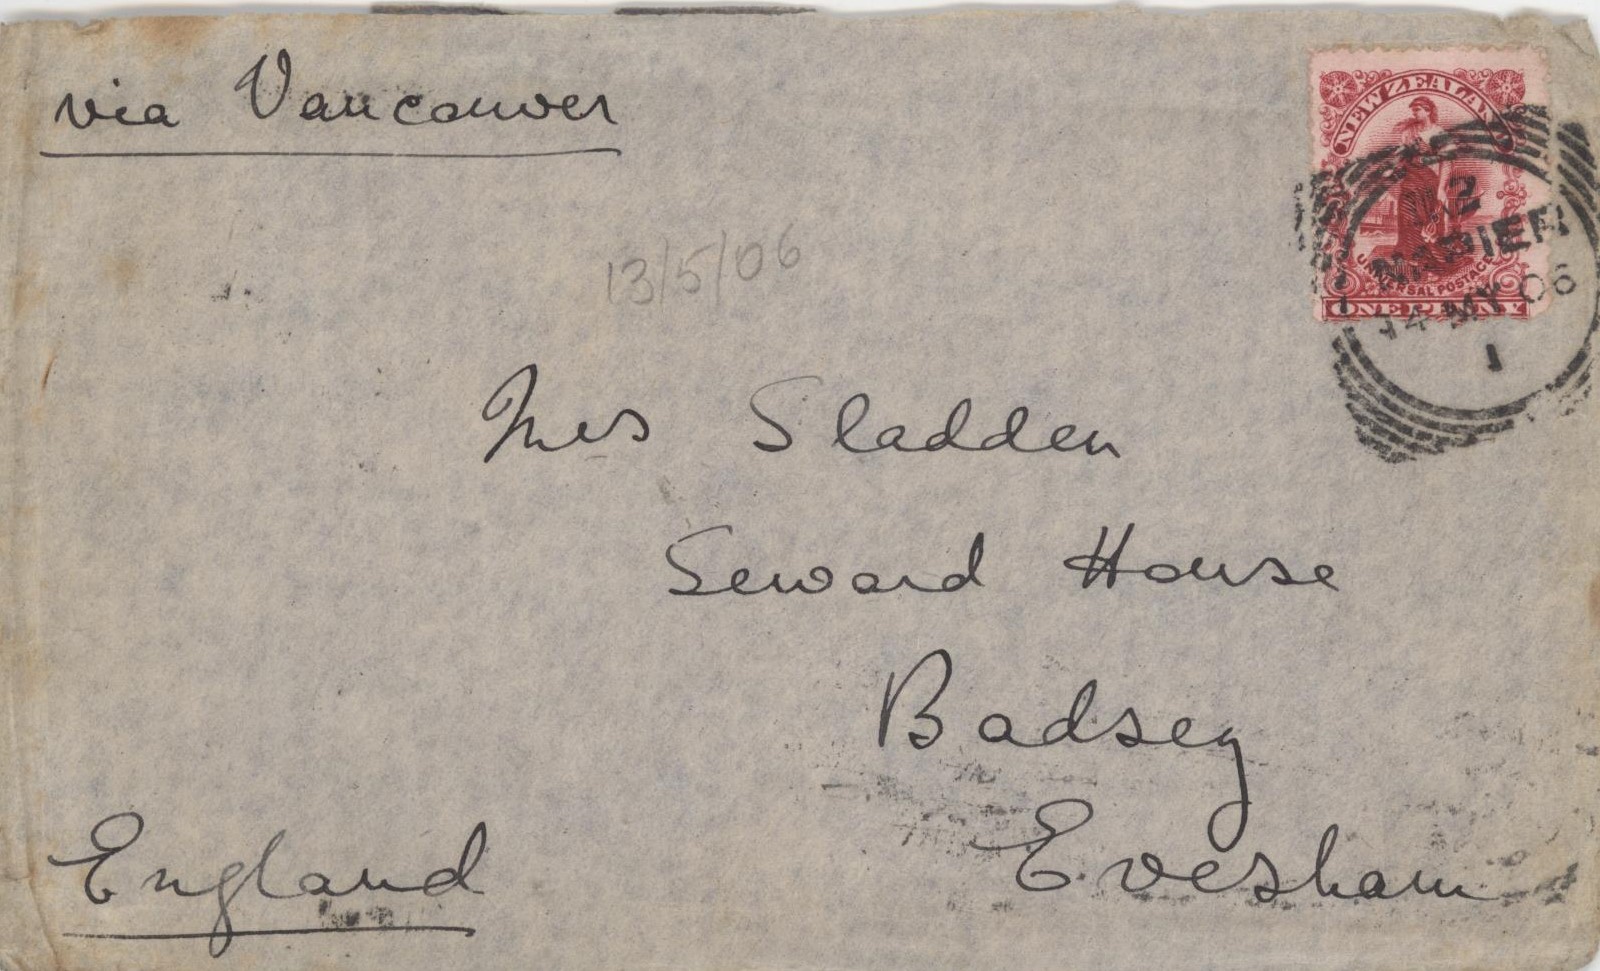 via Vancouver
NEW ZEALAND
N.Z
NAPIER
14 MY 06
1
UNIVERSAL POSTAGE
ONE PENNY
13/5/06
Mrs Sladden
Seward House
Badsey
Evesham
England